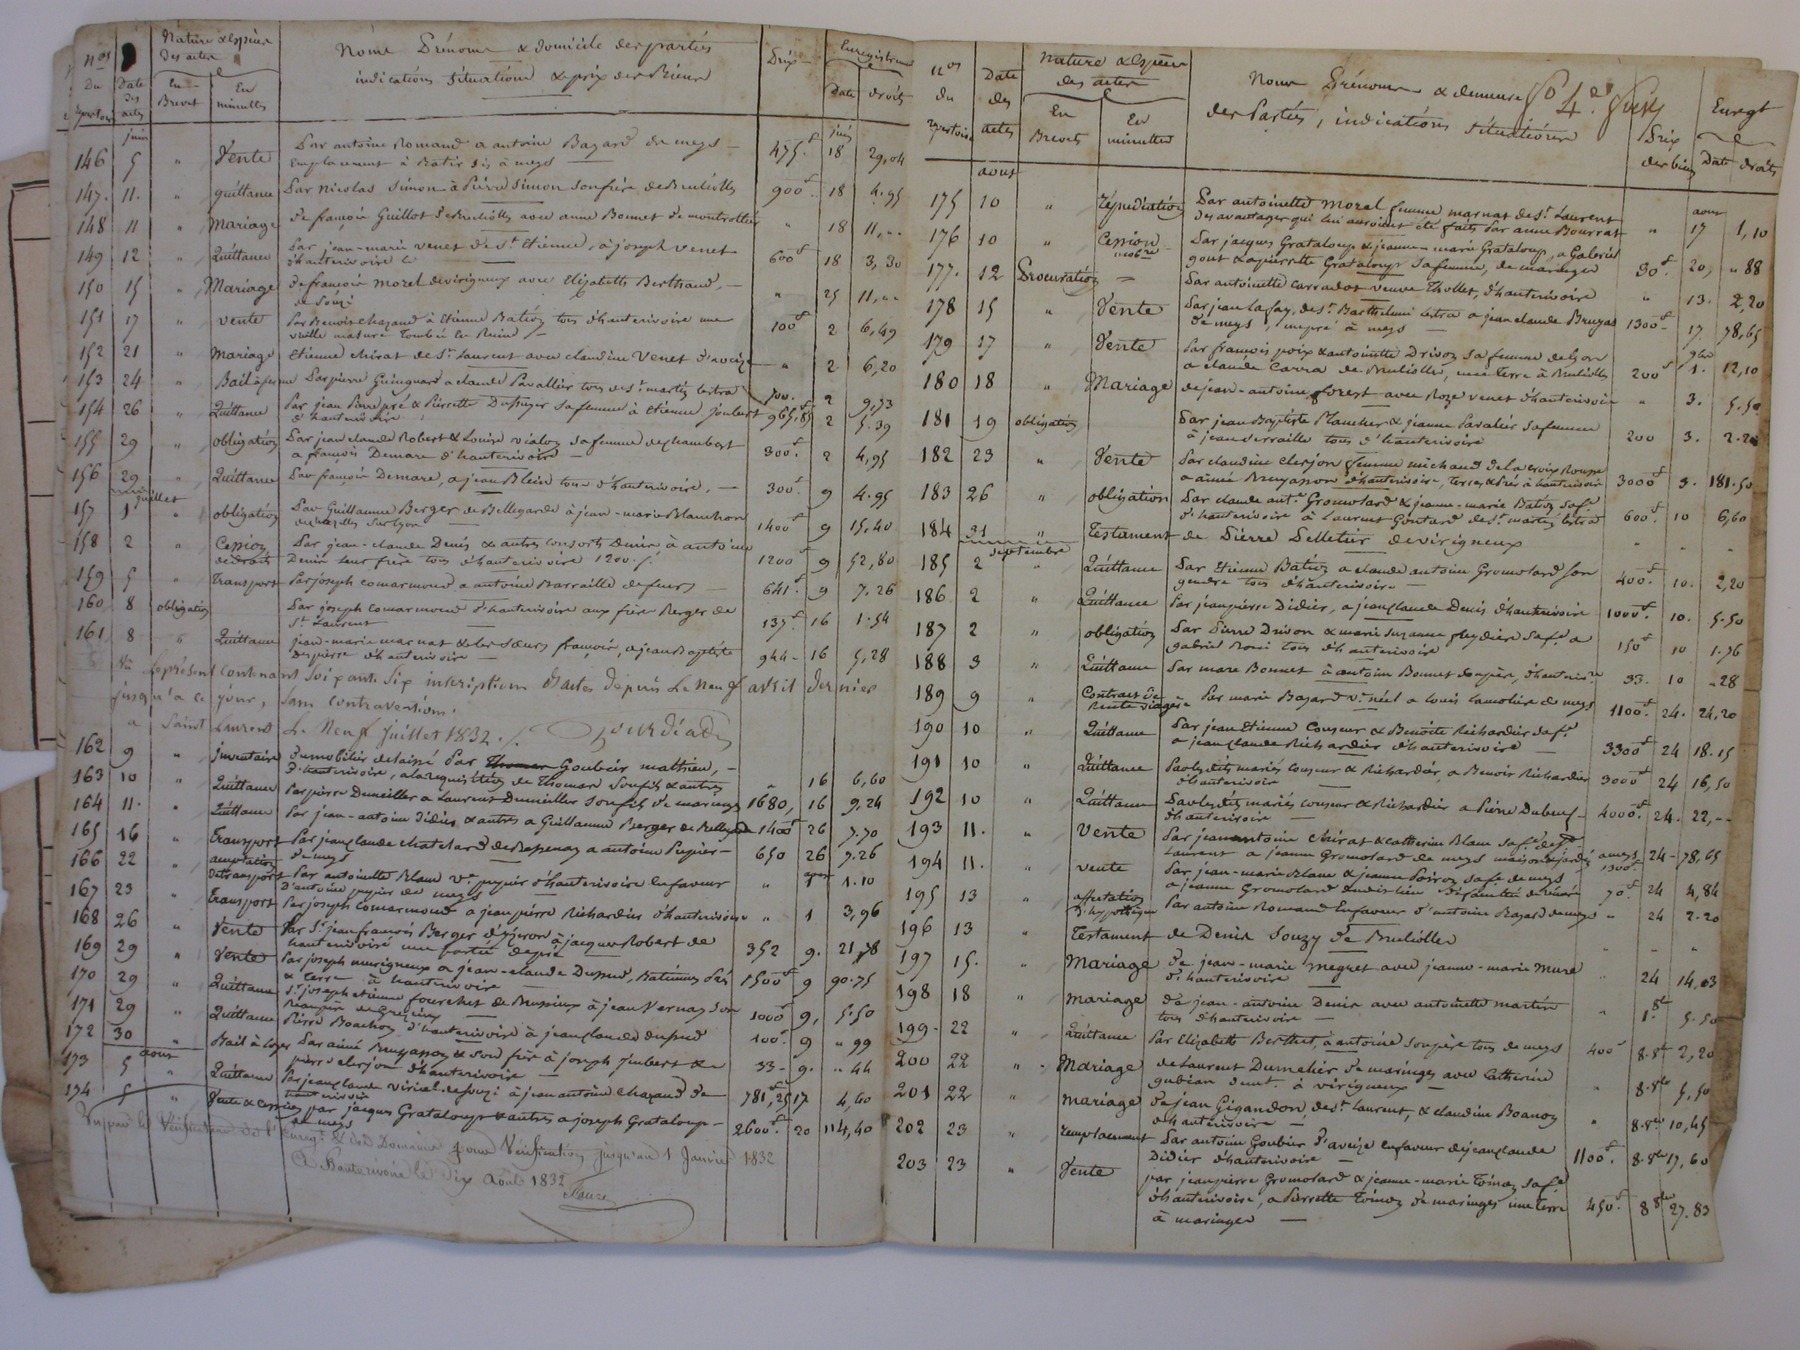 Nos Du Repertoire
Date Des actes
Nature & Espèce Des actes
En Brevet
En minuttes
Noms Prénoms & domicile des parties
indications situations & prix des Biens
Prix
Enregistrem
Date droits
juin juin
146 5 " Vente Par antoine Romand a antoine Bazard de meys —
Emplacement à Batir sis à meys — 475.f 18 29,04
147. 11. " quittance Par Nicolas Simon à Pierre Simon son frère, de Bruliolles 900f 18 4.95
148 11 " Mariage de françois Guillot de Brulliolles avec anne Bonnet de montrottier " 18 11,..
149 12 " Quittance Par jean-marie venet de St Etienne, à joseph venet
d'hauterivoire 600f 18 3,30
150 15 " Mariage de françois morel de virigneux avec Elizabeth Berthaud, —
de Souzi " 25 11,..
151 17 " vente Par Benoit chazaud à Etienne Bation tous d'hauterivoire une
vieille masure tombée en Ruine 100f 2 6,49
152 21 " Mariage Etienne chirat de St Laurent avec claudine Venet d'aveize " 2 6,20
153 24 " Bail à ferme Par pierre Guinguard a claude Pavallier tous de St martin lestra 700.f 2 9,73
154 26 " Quittance Par jean Pierre pré & Pierrette Dupuizet sa femme à Etienne joubert
d'hauterivoire 965.f 2 5.39
155 29 " obligation Par jean claude Robert & Louise vialon sa femme de chambost
a françois Demare d'hauterivoire — 300f. 2 4,95
156 29 " Quittance Par françois Demare, a jean Blein tous d'hauterivoire, — 300f. 9 4.95
juillet
157 1er " obligation Par Guillaume Berger de Bellegarde à jean-marie Blanchon
1400f 9 15.40
158 2 " Cession de droits Par jean-claude Denis & autres consorts Denis à antoine
Denis leur frère tous d'hauterivoire 1200f. 1200 9 52,80
159 5 " Transport Par joseph comarmond a antoine Barraille de feurs — 641.f 9 7.26
160 8 obligation Par joseph comarmond d'hauterivoire aux frères Berger de
St Laurent — 137f. 16 1.54
161 8 " Quittance jean-marie marnat & les sœurs françois, a jean Baptiste
d'hauterivoire — 944- 16 5,28
Vu le présent contenant soixante six inscriptions d'actes depuis le neuf avril dernier
jusqu'à ce jour, sans contravention.
a Saint Laurent Le Neuf juillet 1832.
162 9 " Inventaire du mobilier delaissé par Goubier mathieu, —
d'hauterivoire, a la requisition de Thomas son fils & autres " 16 6,60
163 10 " Quittance Par pierre Dumeiller a Laurent Dumeiller son fils de maringes 1680, 16 9.24
164 11. " Quittance Par jean-antoine didier & autres a Guillaume Berger de Bellegarde 1400f 26 7.70
165 16 " Transport Par jean claude chatelard de a antoine Pupier —
de meys 650 26 7.26
aout
166 22 " acceptation de transport Par antoinette Blanc Ve pupier d'hauterivoire en faveur
d'antoine pupier de meys " 1 1.10
167 23 " Transport Par joseph comarmond a jean pierre Richardier d'hauterivoire " 1 3,96
168 26 " Vente Par Sr jean françois Berger à jacques Robert de
hauterivoire une partie de pré — 352 9. 21,78
169 29 " Vente Par joseph murigneux a jean-claude Dupud, Batimens Prés
& terre à hauterivoire — 1500f 9 90.75
170 29 " Quittance St joseph etienne fourchet de Brussieux à jean Vernay son
1000f 9, 5.50
171 29 " Quittance Pierre Boachon d'hauterivoire à jean claude dupud 100f. 9 " 99
172 30 " Bail à loyer Par aimé Bruyasson & son frère à joseph jmbert &
pierre clerjon d'hauterivoire — 33- 9. " 44
aout
173 5 " Quittance Par jean claude viricel de Souzi à jean antoine chazaud de
hauterivoire 781,25 17 4,60
174 5 " Vente & cession par jacques Grataloup & autres a joseph Grataloup —
de meys 2600f. 20 114,40
Vu par le Vérificateur de l'Enregt & des Domaines pour Vérification jusqu'au 1 Janvier 1832
A Hauterivoire le dix Aout 1832
Faure
nos du repertoire
Date des actes
Nature & Espèce des actes
En Brevets
En minuttes
Noms Prénoms & demeure
des Parties, indications situations
fo 4e
Prix des biens
Enregt
Date droits
aout aout
175 10 " répudiation Par antoinette morel femme marnat de St Laurent
des avantages qui lui auroient été faits par anne Bourrat " 17 1,10
176 10 " Cession Par jacques Grataloup & jeanne-marie Grataloup, a Gabriel
gout & a pierrette Grataloup sa femme, de maringes 30f. 20, " 88
177. 12 Procuration " Par antoinette carradot veuve Thollet, d'hauterivoire " 13. 2,20
178 15 " Vente Par jean Lafay, de St Barthelemi lestra a jean claude Bruyas
de meys, un pré à meys — 1300f 17. 78,65
179 17 " Vente Par françois poix & antoinette Drivon sa femme de Lyon
a claude Carra de Brulliolles, une terre à Brulliolles 200f 1. 12,10
180 18 " Mariage de jean-antoine forest avec Roze venet d'hauterivoire " 3. 5.50
181 19 obligation Par jean Baptiste Plancher & jeanne Pavalier sa femme
à jean serraille tous d'hauterivoire 200 3. 2.20
182 23 " Vente Par claudine clerjon femme michaud de la croix Rousse
a aimé Bruyasson d'hauterivoire, terres & Pré à hauterivoire 3000f 3. 181.50
183 26 " obligation Par claude ante Gromolard & jeanne-marie Bation safe
d'hauterivoire à Laurent Goutard de St martin lestra 600f. 10 6,60
184 31 " Testament de Pierre Pelletier de virigneux " " "
septembre
185 2 " Quittance Par Etienne Bation a claude antoine Gromolard son
gendre tous d'hauterivoire — 400f. 10. 2,20
186 2 " Quittance Par jean pierre Didier, a jean claude Denis d'hauterivoire 1000f. 10. 5.50
187 2 " obligation Par Pierre Drivon & marie Suzanne fleydier safe a
gabriel Roux tous d'hauterivoire 150f 10 1.76
188 3 " Quittance Par marc Bonnet à antoine Bonnet son père, d'hauterivre 33. 10 " 28
189 9 " Contract de Rente viagère Par marie Bazard ve néel a louis lamolière de meys 1100f. 24. 24,20
190 10 " Quittance Par jean Etienne Couzeur & Benoite Richardier safe
a jean claude Richardier d'hauterivoire — 3300f 24 18.15
191 10 " Quittance Par les dits mariés couzeur & Richardier, a Benoit Richardier
d'hauterivoire — 3000f 24 16,50
192 10 " Quittance Par les dits mariés couzeur & Richardier a Pierre Dubeuf —
d'hauterivoire — 4000f. 24. 22,..
193 11. " Vente Par jean antoine chirat & catherine Blanc safe de St
Laurent a jeanne Gromolard de meys maison & jardin a meys 1300f. 24- 78,65
194 11. " vente Par jean-marie Blanc & jeanne Poizon safe de meys
a jeanne Gromolard du dit lieu 70f 24 4,84
195 13 " affectation d'hypothèque Par antoine Romand En faveur d'antoine Bazard de meys " 24 2.20
196 13 " Testament de Denise Souzy de Brulliolles " " "
197 15. " Mariage de jean-marie megret avec jeanne-marie mure
d'hauterivoire " 24 14,03
198 18 " mariage de jean-antoine Denis avec antoinette martin
tous d'hauterivoire — " 1.8e 5.50
199- 22 " Quittance Par Elizabeth Berthet, à antoine son père tous de meys 400f 8.8e 2,20
200 22 " Mariage de Laurent Dumelier de maringes avec Catherine
gubian demt à virigneux — " 8.8e 5,50
201 22 " mariage de jean Gigandon de St Laurent, & claudine Boanon
d'hauterivoire — " 8.8e 10,45
202 23 " remplacement Par antoine Goubier d'aveize en faveur de jean claude
Didier d'hauterivoire — 1100f. 8.8e 17,60
203 23 " Vente par jean pierre Gromolard & jeanne-marie Toinon safe
d'hauterivoire, a Pierrette Toinon de maringes une terre
à maringes — 450f. 8 8e 27.83